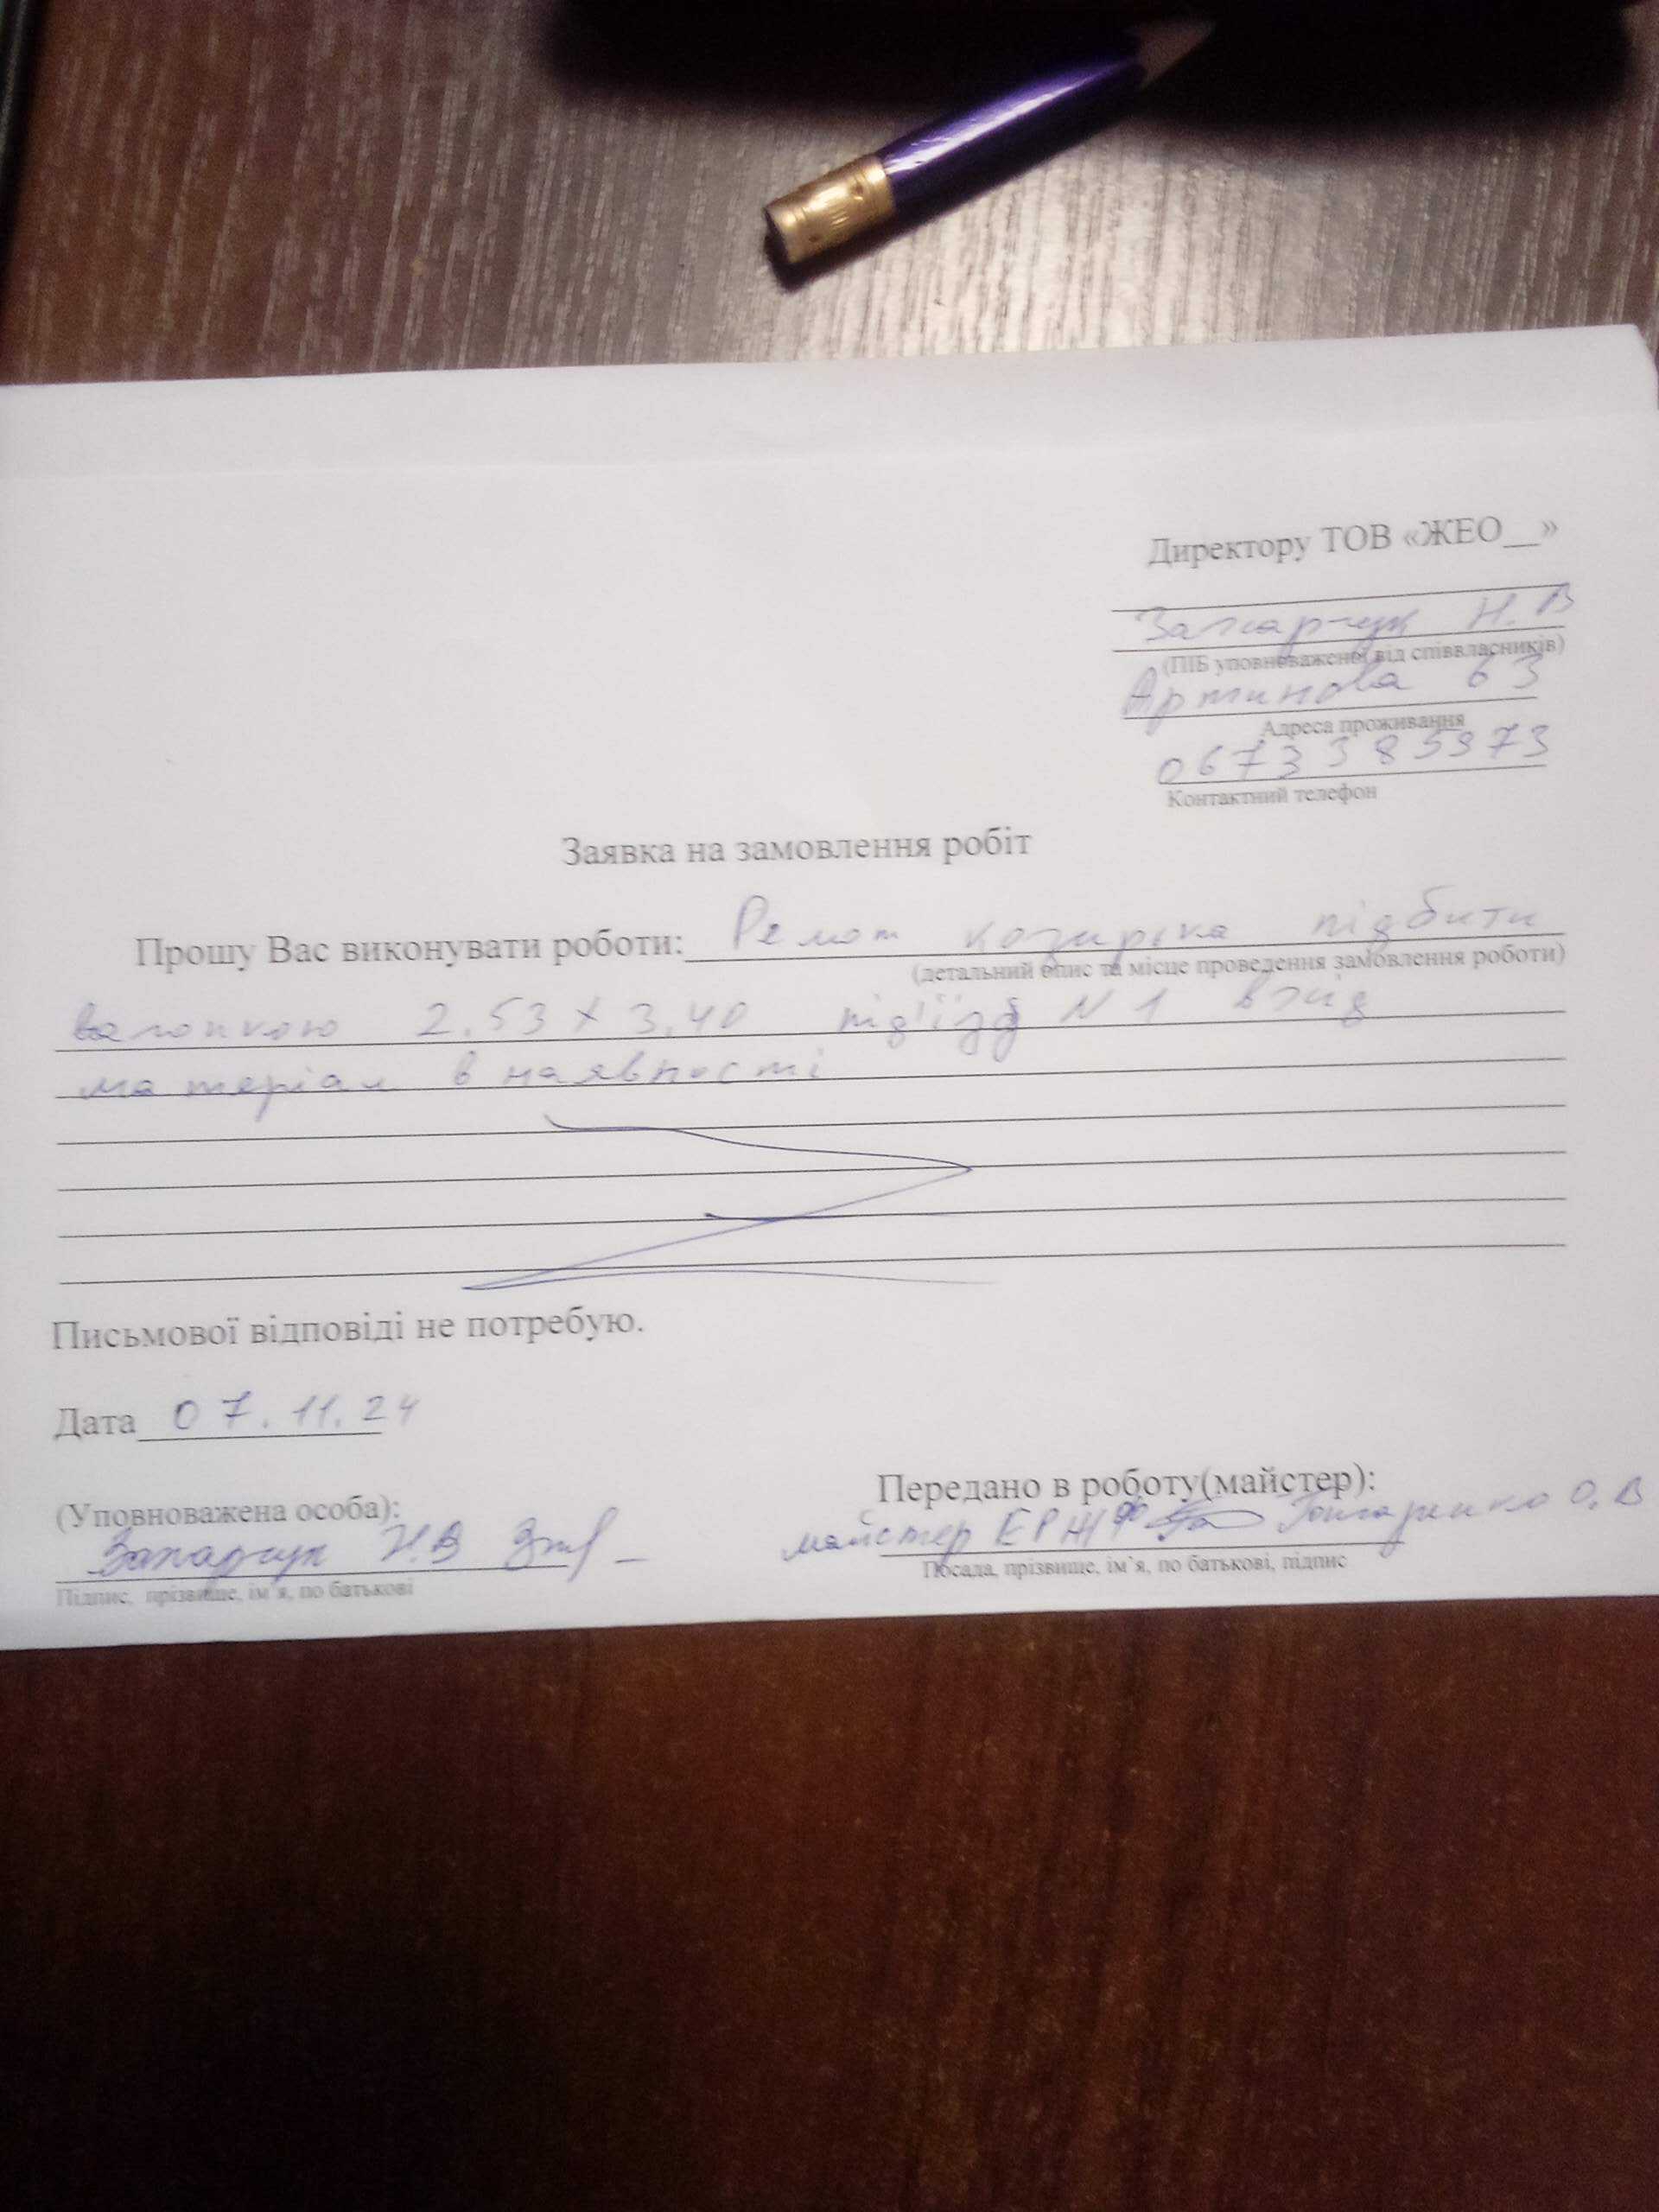 Директору ТОВ «ЖЕО__»
Захарчук Н.В
(ПІБ уповноваженої від співвласників)
Артинова 63
Адреса проживання
0673385973
Контактний телефон
Заявка на замовлення робіт
Прошу Вас виконувати роботи: Ремот козирка підбити
(детальний опис та місце проведення замовлення роботи)
вагонкою 2.53 х 3.40 під'їзд N 1 вхід
матеріал в наявності
Письмової відповіді не потребую.
Дата 07.11.24
(Уповноважена особа):
Захарчук Н.В
Підпис, прізвище, ім’я, по батькові
Передано в роботу(майстер):
майстер ЕРЖФ Гончаренко О.В
Посада, прізвище, ім’я, по батькові, підпис